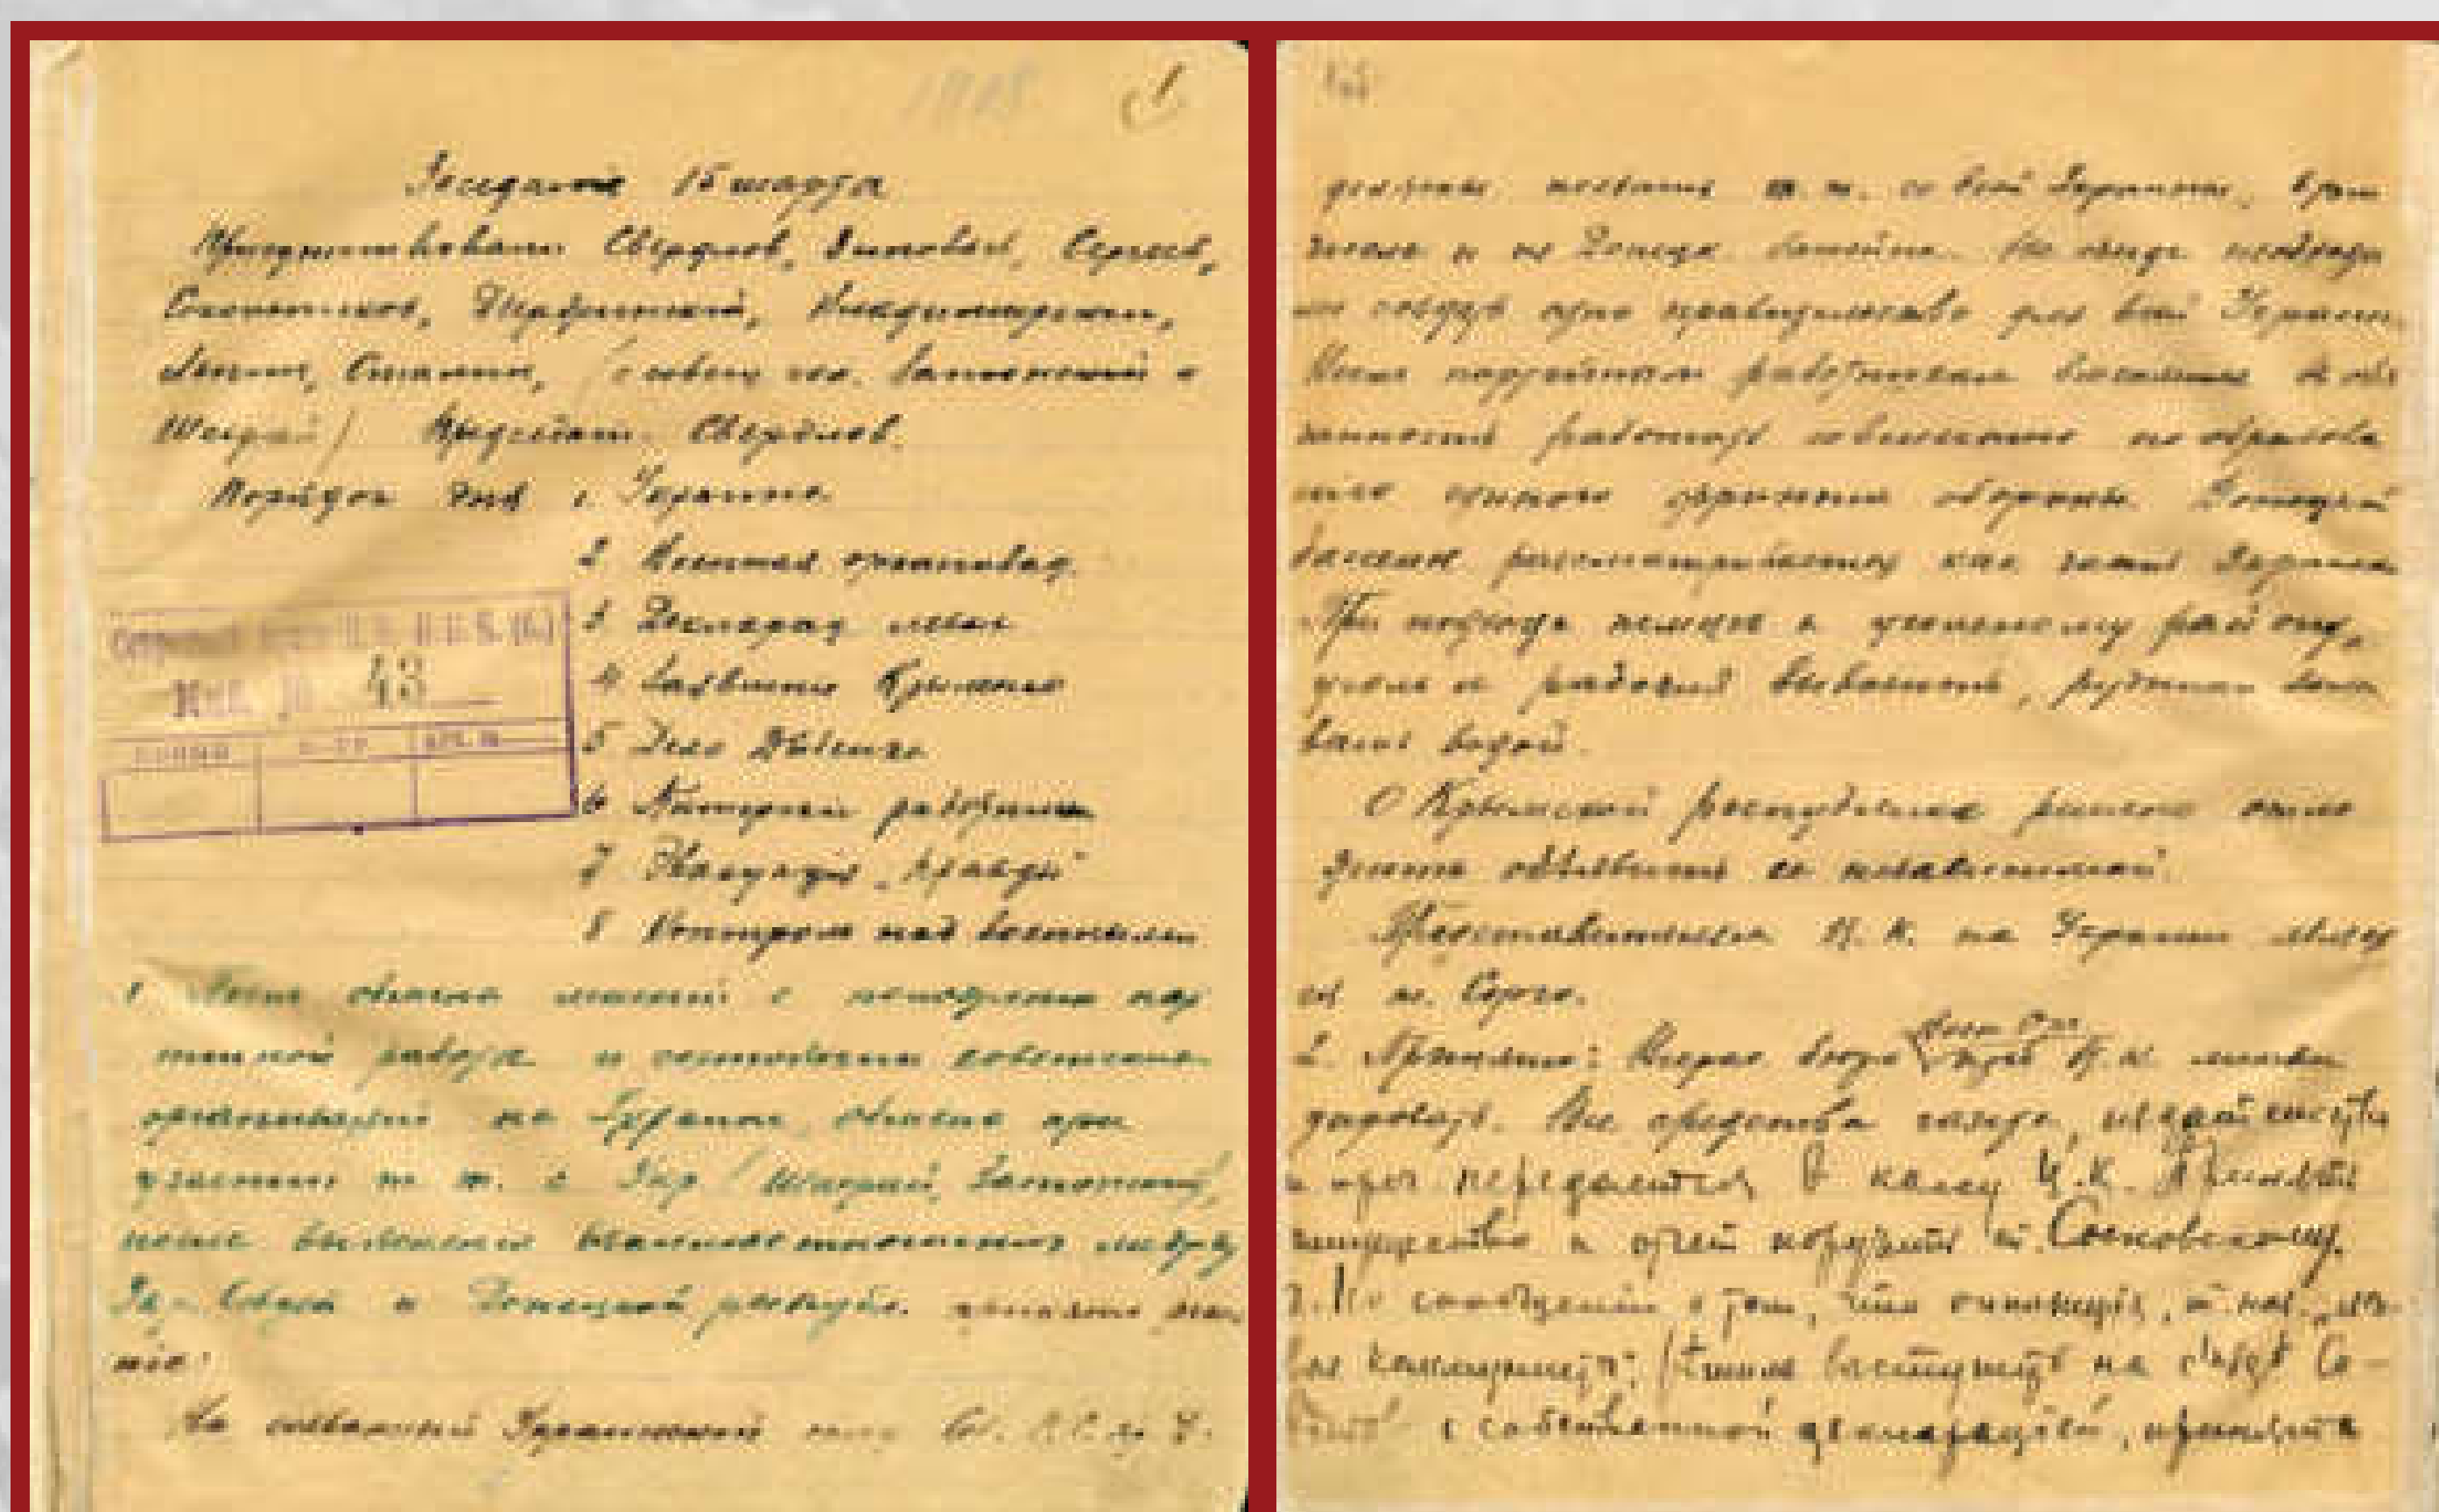 1918 1
Заседание 15 марта
Присутствовали Свердлов, Зиновьев, Сергеев,
Сокольников, Дзержинский, Владимирский,
Ленин, Сталин, (с совещ гол. Затонский и
Шахрай) Председат. Свердлов.
Порядок дня 1. Украина.
2 Военная организац.
3 Декларац левых
4 Заявление Крыленко
5 Дело Дыбенко
6 Латерный
7 Эвакуация „Правды"
8 Контроль над военными
Ц.К. В.К.П.(б.)
43
1 обмена мнений о положении пар
тийной работы и состоянии советских
организаций на Украине, обмена при
участии т. т. с Укр (Шахрай, Затонский),
после выяснения взаимоотношений между
и Донецкой республ. принято
ние:
На созываемый Украинский Св. Р. С. и К.
должны поехать т. т. со всей Украины, в том
числе и из Донецк бассейна. На съезде необходи
мо создать одно правительство для всей Украины.
Всем партийным работникам вменяется в обя
занность работать совместно по образова
нию единого фронта обороны. Донецкий
бассейн рассматривается как часть Украины
При подходе немцев к угольному району,
уголь и рабочих вывозить, рудники зали
вать водой.
О Крымской республике решено
объявить ее независимой.
Представителем Ц. К. на Украине являет
ся т. Серго.
2. Принято: Бюро Воен Орг. при Ц. К. ликви
дировать. Все средства газеты, издательства
и проч передаются в кассу Ц.К. Принять
имущество и отчет поручить т. Сосновскому.
3. По сообщении о том, что оппозиция, т. наз. „ле-
вые коммунисты" также выступят на съезде Со-
ветов с собственной декларацией, принята